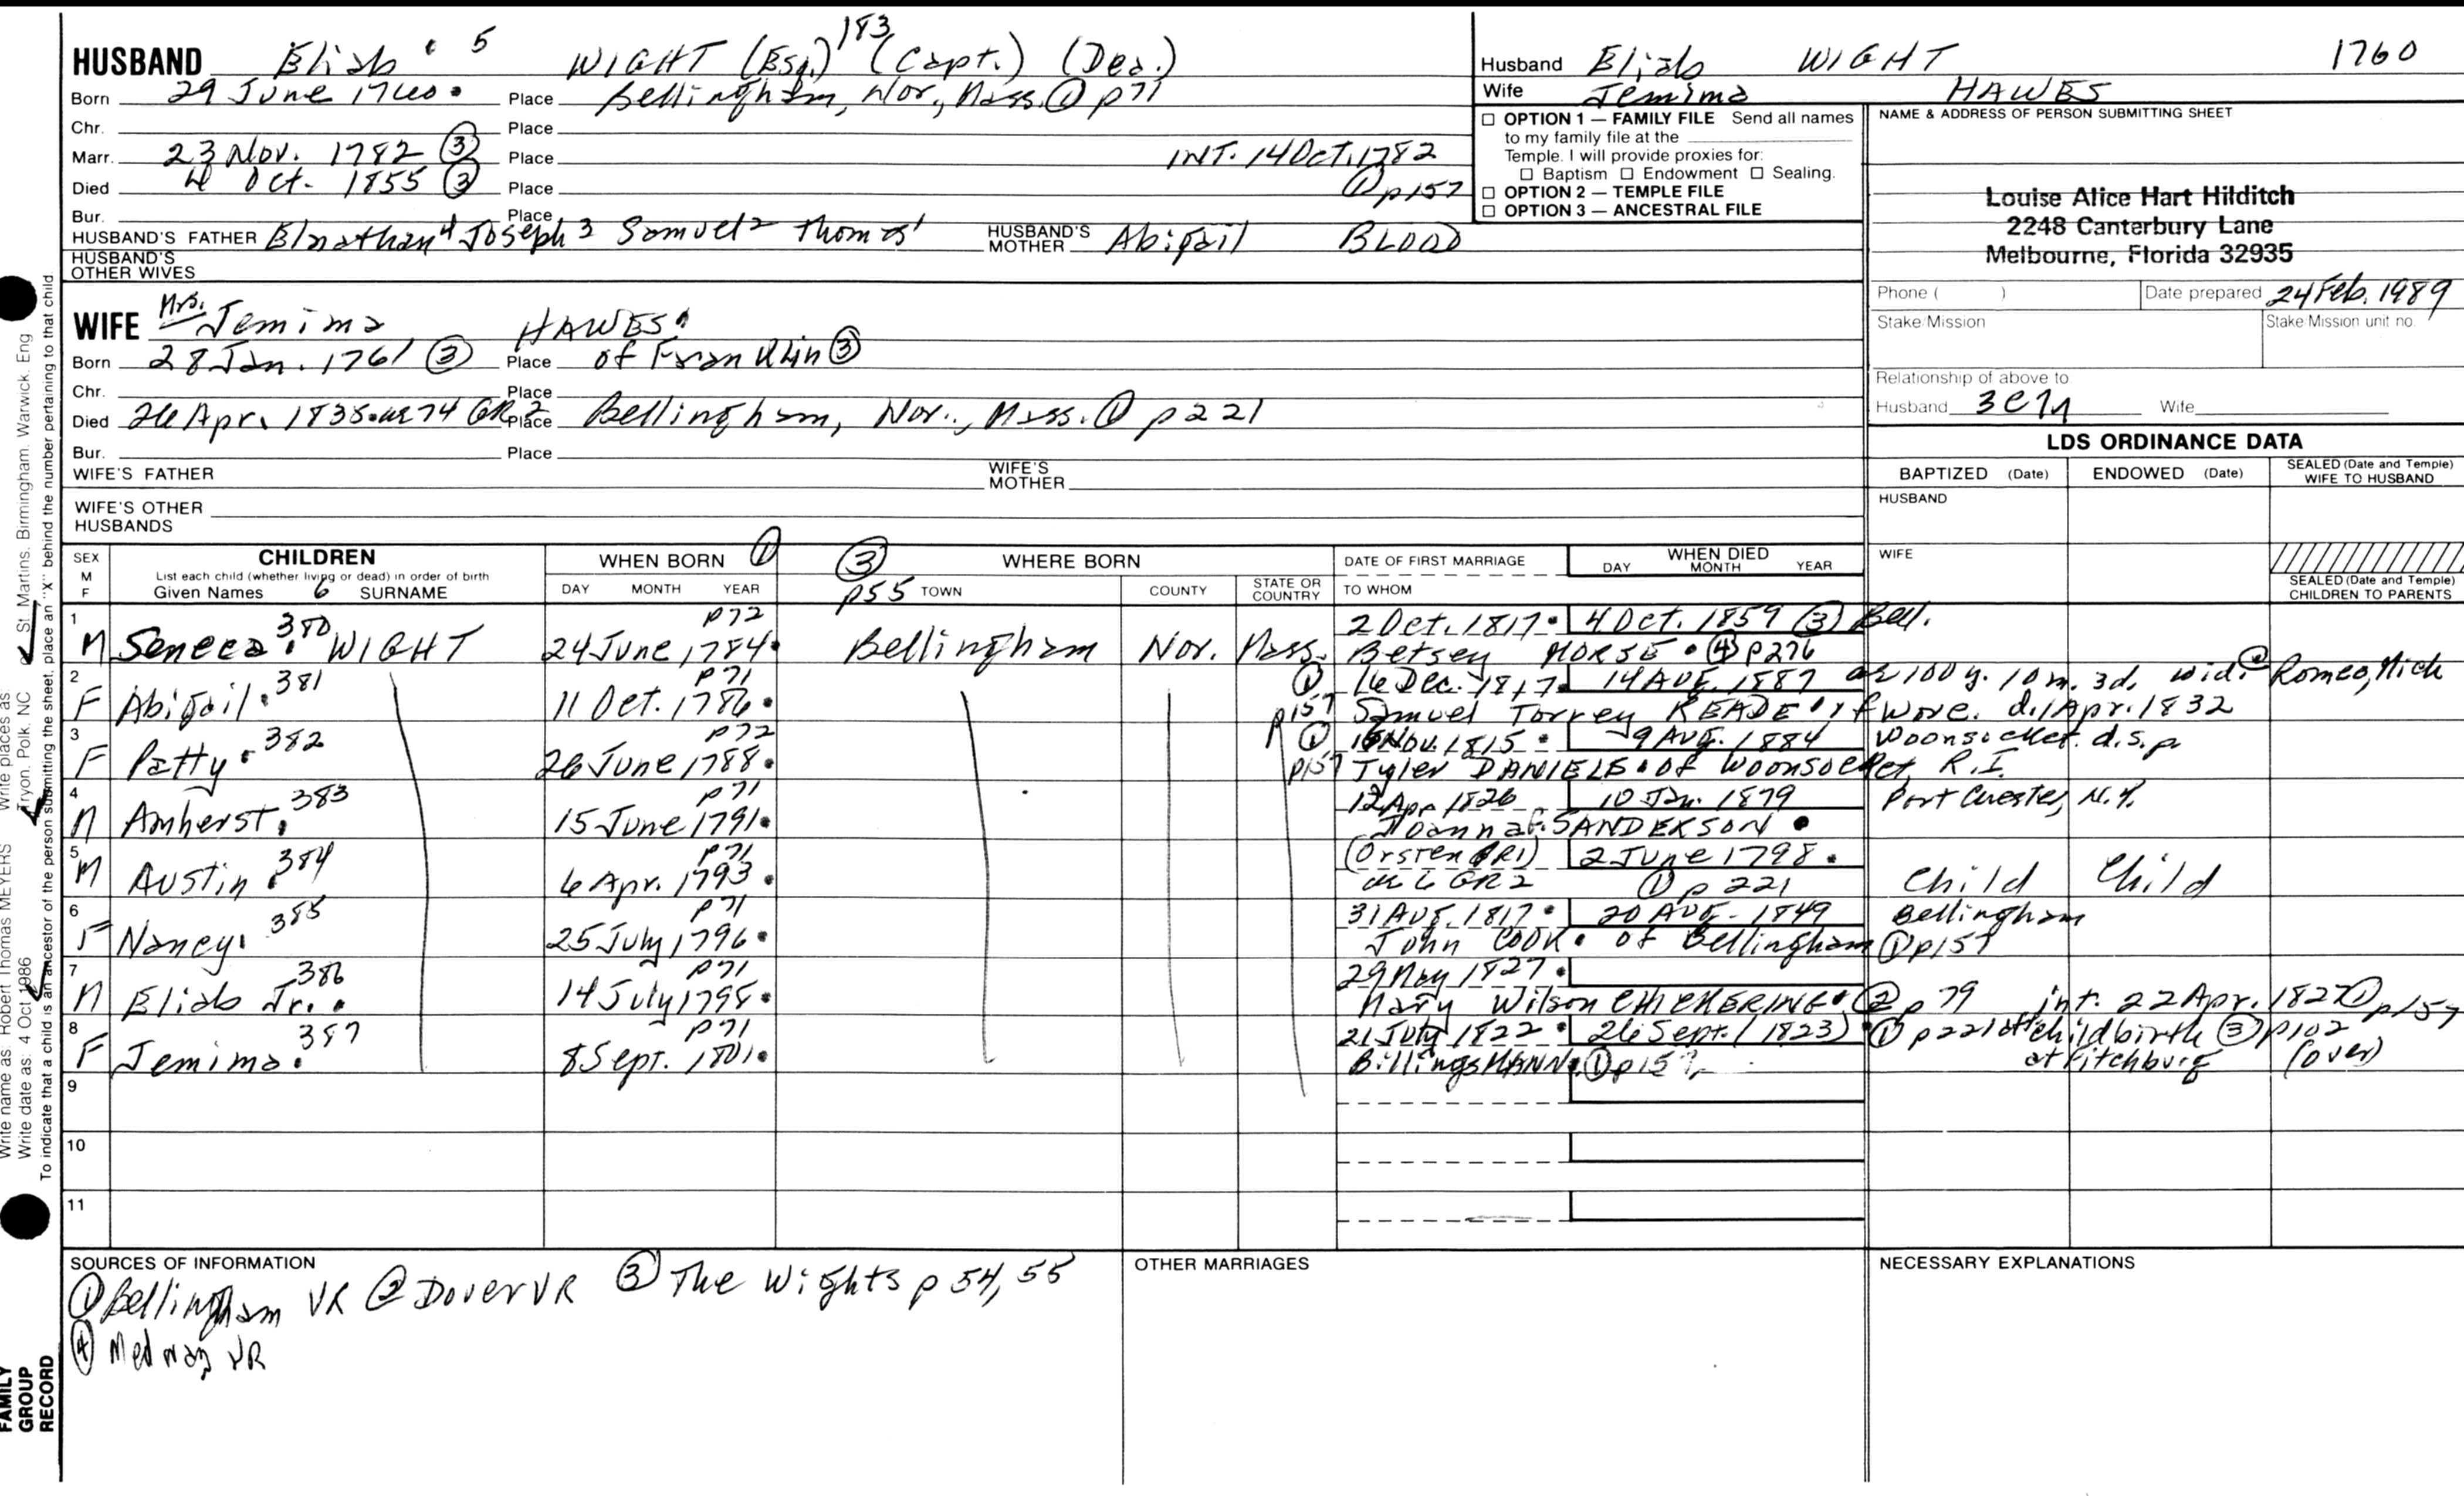 HUSBAND Eliab 5 WIGHT (Esq.) 183 (Capt.) (Dea.)
Born 29 June 1760. Place Bellingham, Nor., Mass. ① p71
Chr. Place
Marr. 23 Nov. 1782 ③ Place INT. 14 Oct. 1782
Died 4 Oct. 1855 ③ Place ① p157
Bur. Place
HUSBAND'S FATHER Elnathan4 Joseph3 Samuel2 Thomas1 HUSBAND'S MOTHER Abigail BLOOD
HUSBAND'S OTHER WIVES
WIFE Mrs. Jemima HAWES.
Born 28 Jan. 1761 ③ Place of Franklin ③
Chr. Place
Died 26 Apr. 1835. ae 74 GR 2 Place Bellingham, Nor., Mass. ① p221
Bur. Place
WIFE'S FATHER WIFE'S MOTHER
WIFE'S OTHER HUSBANDS
Husband Eliab WIGHT 1760
Wife Jemima HAWES
☐ OPTION 1 — FAMILY FILE Send all names
to my family file at the
Temple. I will provide proxies for:
☐ Baptism ☐ Endowment ☐ Sealing.
☐ OPTION 2 — TEMPLE FILE
☐ OPTION 3 — ANCESTRAL FILE
NAME & ADDRESS OF PERSON SUBMITTING SHEET
Louise Alice Hart Hilditch
2248 Canterbury Lane
Melbourne, Florida 32935
Phone ( ) Date prepared 24 Feb. 1989
Stake/Mission Stake/Mission unit no.
Relationship of above to
Husband Wife
LDS ORDINANCE DATA
BAPTIZED (Date) ENDOWED (Date) SEALED (Date and Temple) WIFE TO HUSBAND
HUSBAND
WIFE
SEALED (Date and Temple) CHILDREN TO PARENTS
SEX M F CHILDREN WHEN BORN ① ③ WHERE BORN DATE OF FIRST MARRIAGE WHEN DIED
List each child (whether living or dead) in order of birth DAY MONTH YEAR
Given Names 6 SURNAME DAY MONTH YEAR p55 TOWN COUNTY STATE OR COUNTRY TO WHOM
1 380 p72 2 Oct. 1817. 4 Oct. 1859 ③ Bell.
M Seneca. WIGHT 24 June 1784. Bellingham Nor. Mass. Betsey MORSE. ④ p276
2 381 p71 ① 16 Dec. 1817. 14 Aug. 1887 ae 100 y. 10 m. 3d. wid. Romeo, Mich
F Abigail. 11 Oct. 1786. p157 Samuel Torrey READE. of Wore. d. 1 Apr. 1832
3 382 p72 ① 16 Nov. 1815. 9 Aug. 1884 Woonsocket. d.s.p.
F Patty. 26 June 1788. p157 Tyler DANIELS. of Woonsocket, R.I.
4 383 p71 12 Apr. 1826 10 Jan. 1879 Port Chester, N.Y.
M Amherst. 15 June 1791. Joanna F. SANDERSON.
5 384 p71 (Orsten GR1) 2 June 1798.
M Austin. 6 Apr. 1793. ae 6 GR2 ① p221 Child Child
6 385 p71 31 Aug. 1817. 20 Aug. 1849 Bellingham
F Nancy. 25 July 1796. John COOK. of Bellingham ① p157
7 386 p71 29 May 1827.
M Eliab Jr.. 14 July 1798. Mary Wilson CHICKERING. ② p79 int. 22 Apr. 1827 ① p157
8 387 p71 21 July 1822. 26 Sept. (1823). ① p221 childbirth ③ p102
F Jemima. 8 Sept. 1801. Billings MANN. ① p157 at Fitchburg (over)
9
10
11
SOURCES OF INFORMATION
① Bellingham VR ② Dover VR ③ The Wights p 54, 55
④ Medway VR
OTHER MARRIAGES
NECESSARY EXPLANATIONS
Write name as: Robert Thomas MEYERS Write places as: Tryon, Polk, NC
Write date as: 4 Oct 1986 St. Martins, Birmingham, Warwick, Eng
To indicate that a child is an ancestor of the person submitting the sheet, place an "X" behind the number pertaining to that child
FAMILY
GROUP
RECORD